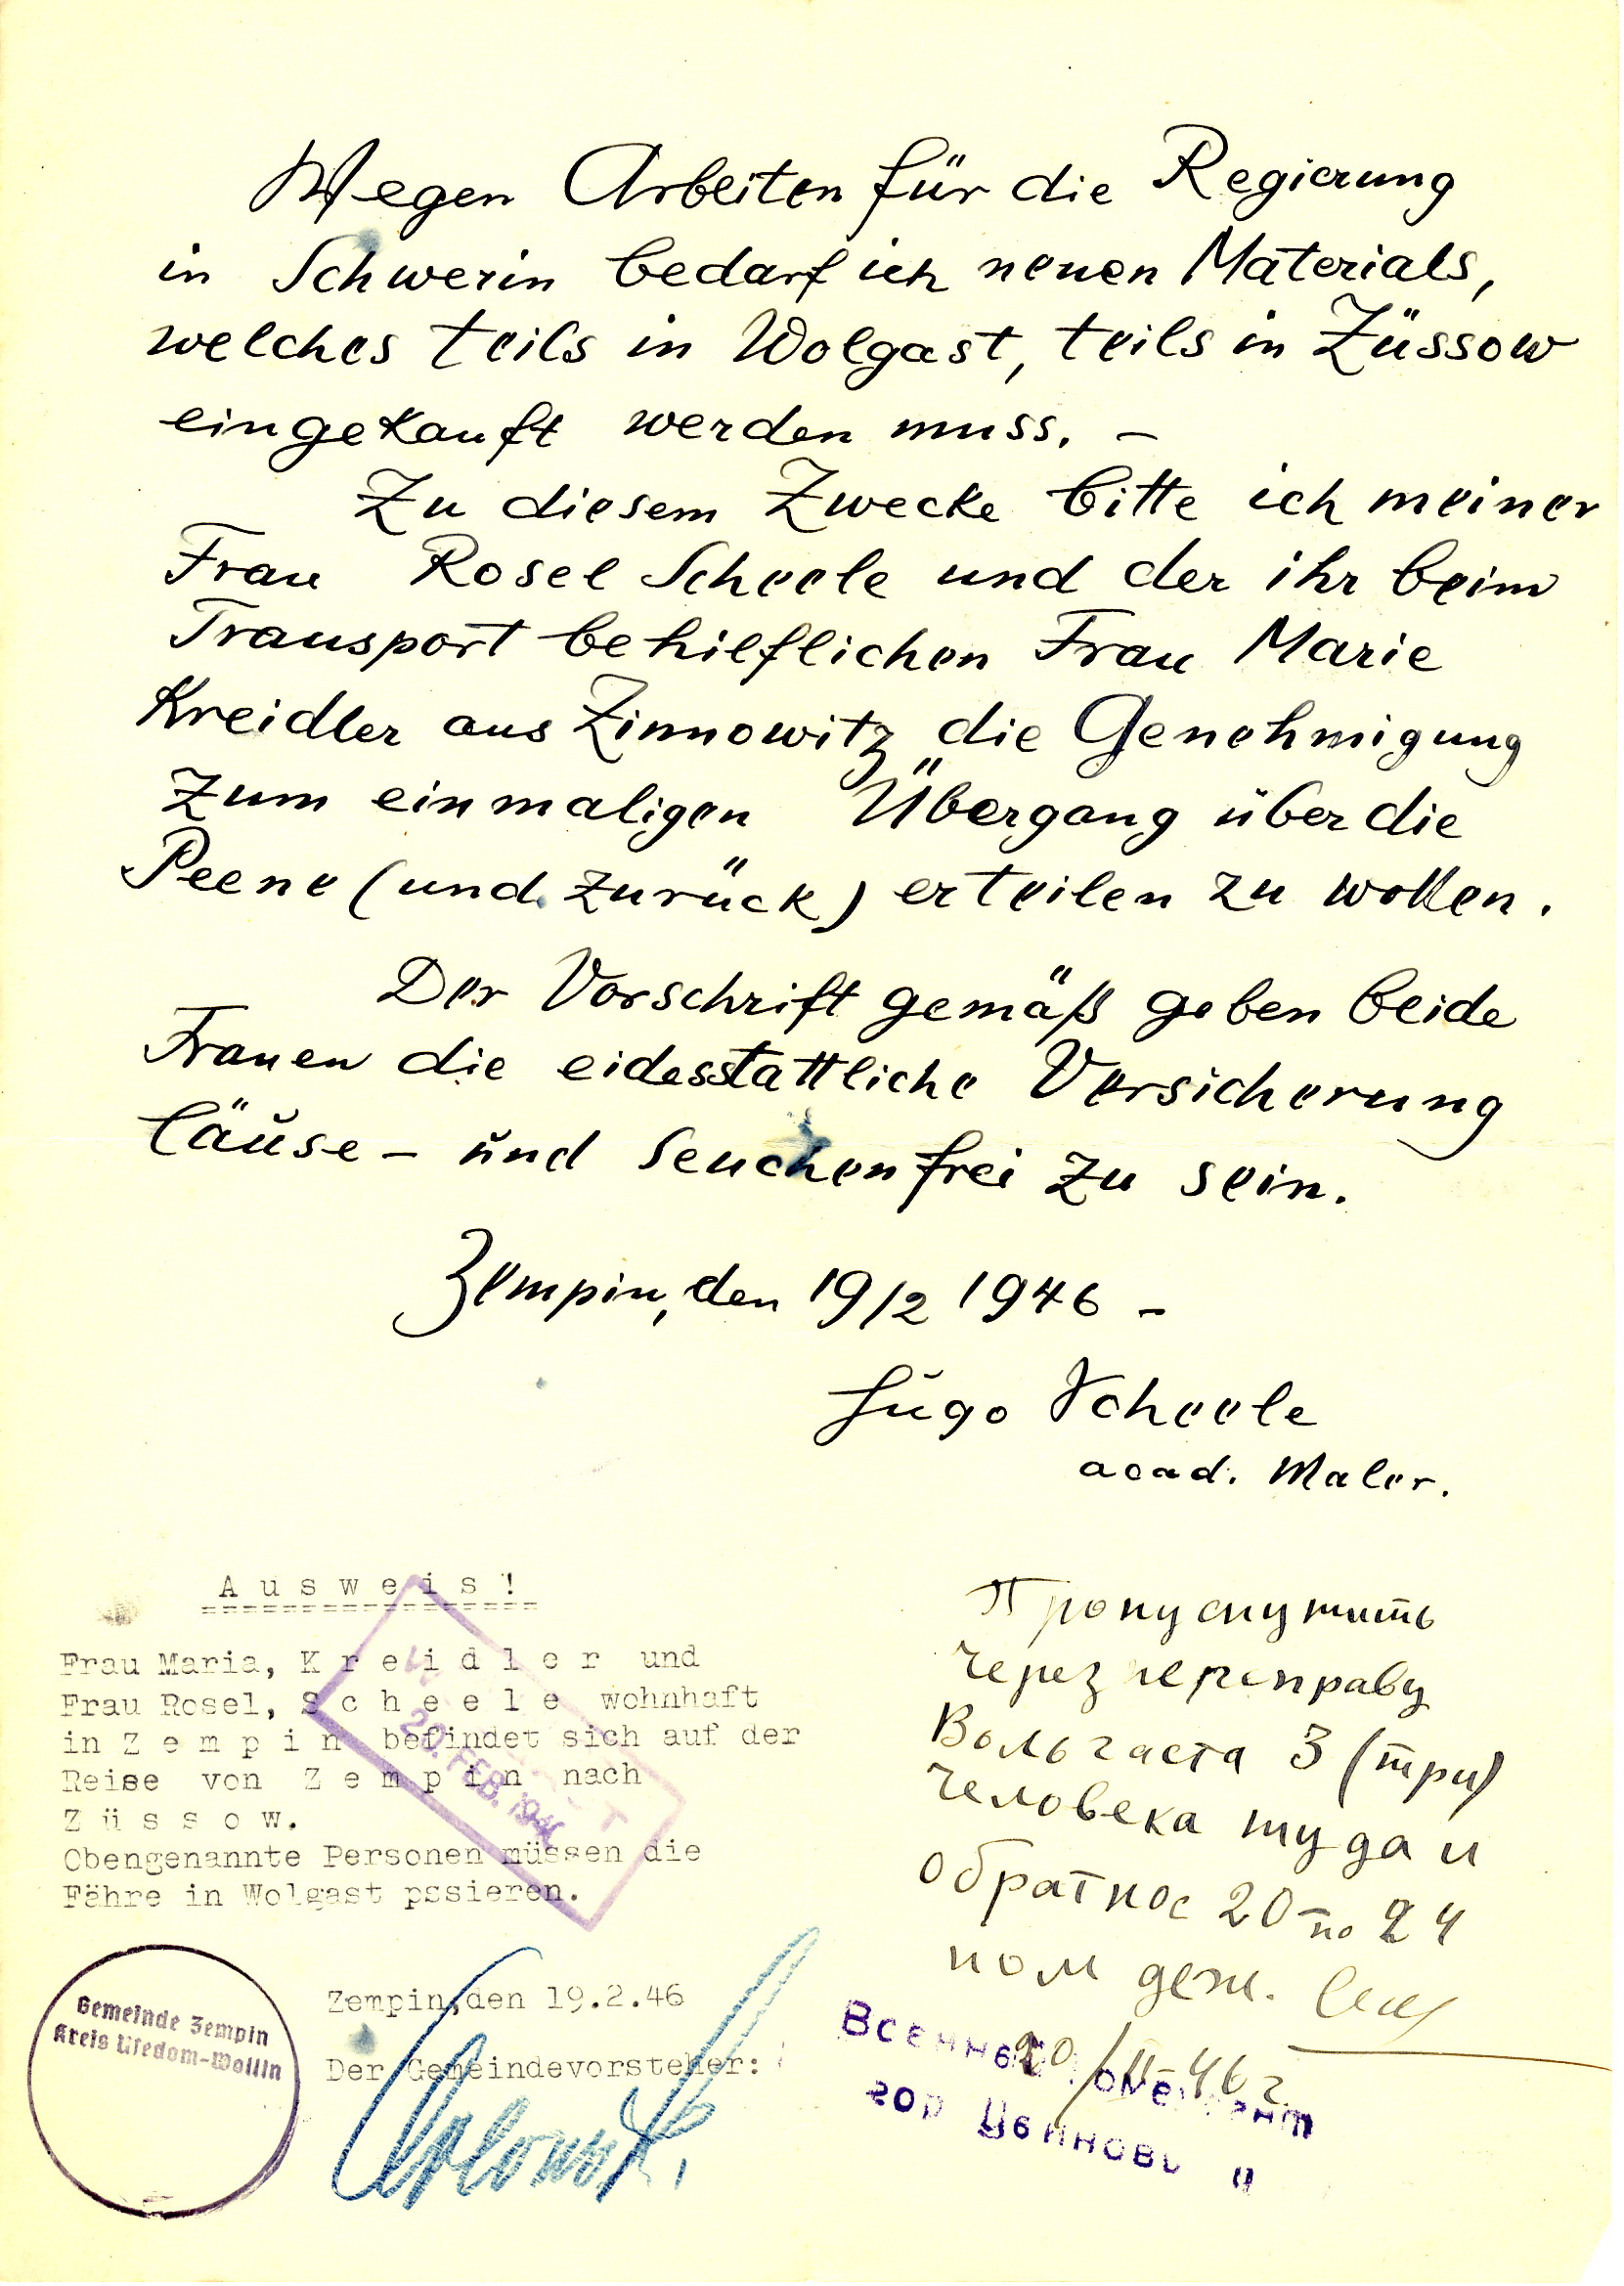 Wegen Arbeiten für die Regierung
in Schwerin bedarf ich neuen Materials,
welches teils in Wolgast, teils in Züssow
eingekauft werden muss. –
Zu diesem Zwecke bitte ich meiner
Frau Rosel Scheele und der ihr beim
Transport behilflichen Frau Marie
Kreidler aus Zinnowitz die Genehmigung
zum einmaligen Übergang über die
Peene (und zurück) erteilen zu wollen.
Der Vorschrift gemäß geben beide
Frauen die eidesstattliche Versicherung
läuse- und seuchenfrei zu sein.
Zempin, den 19/2 1946 –
Hugo Scheele
acad. Maler.
A u s w e i s !
Frau Maria, K r e i d l e r und
Frau Rosel, S c h e e l e wohnhaft
in Z e m p i n befindet sich auf der
Reise von Z e m p i n nach
Z ü s s o w.
Obengenannte Personen müssen die
Fähre in Wolgast pssieren.
20. FEB. 1946
Zempin,den 19.2.46
Der Gemeindevorsteher:
Gemeinde Zempin
Kreis Usedom-Wollin
Пропуснутить
через переправу
Вольгаста 3 (три)
человека туда и
обратное 20 по 24
пом деж.
20/II-46 г.
Военный комендант
гор Цинови